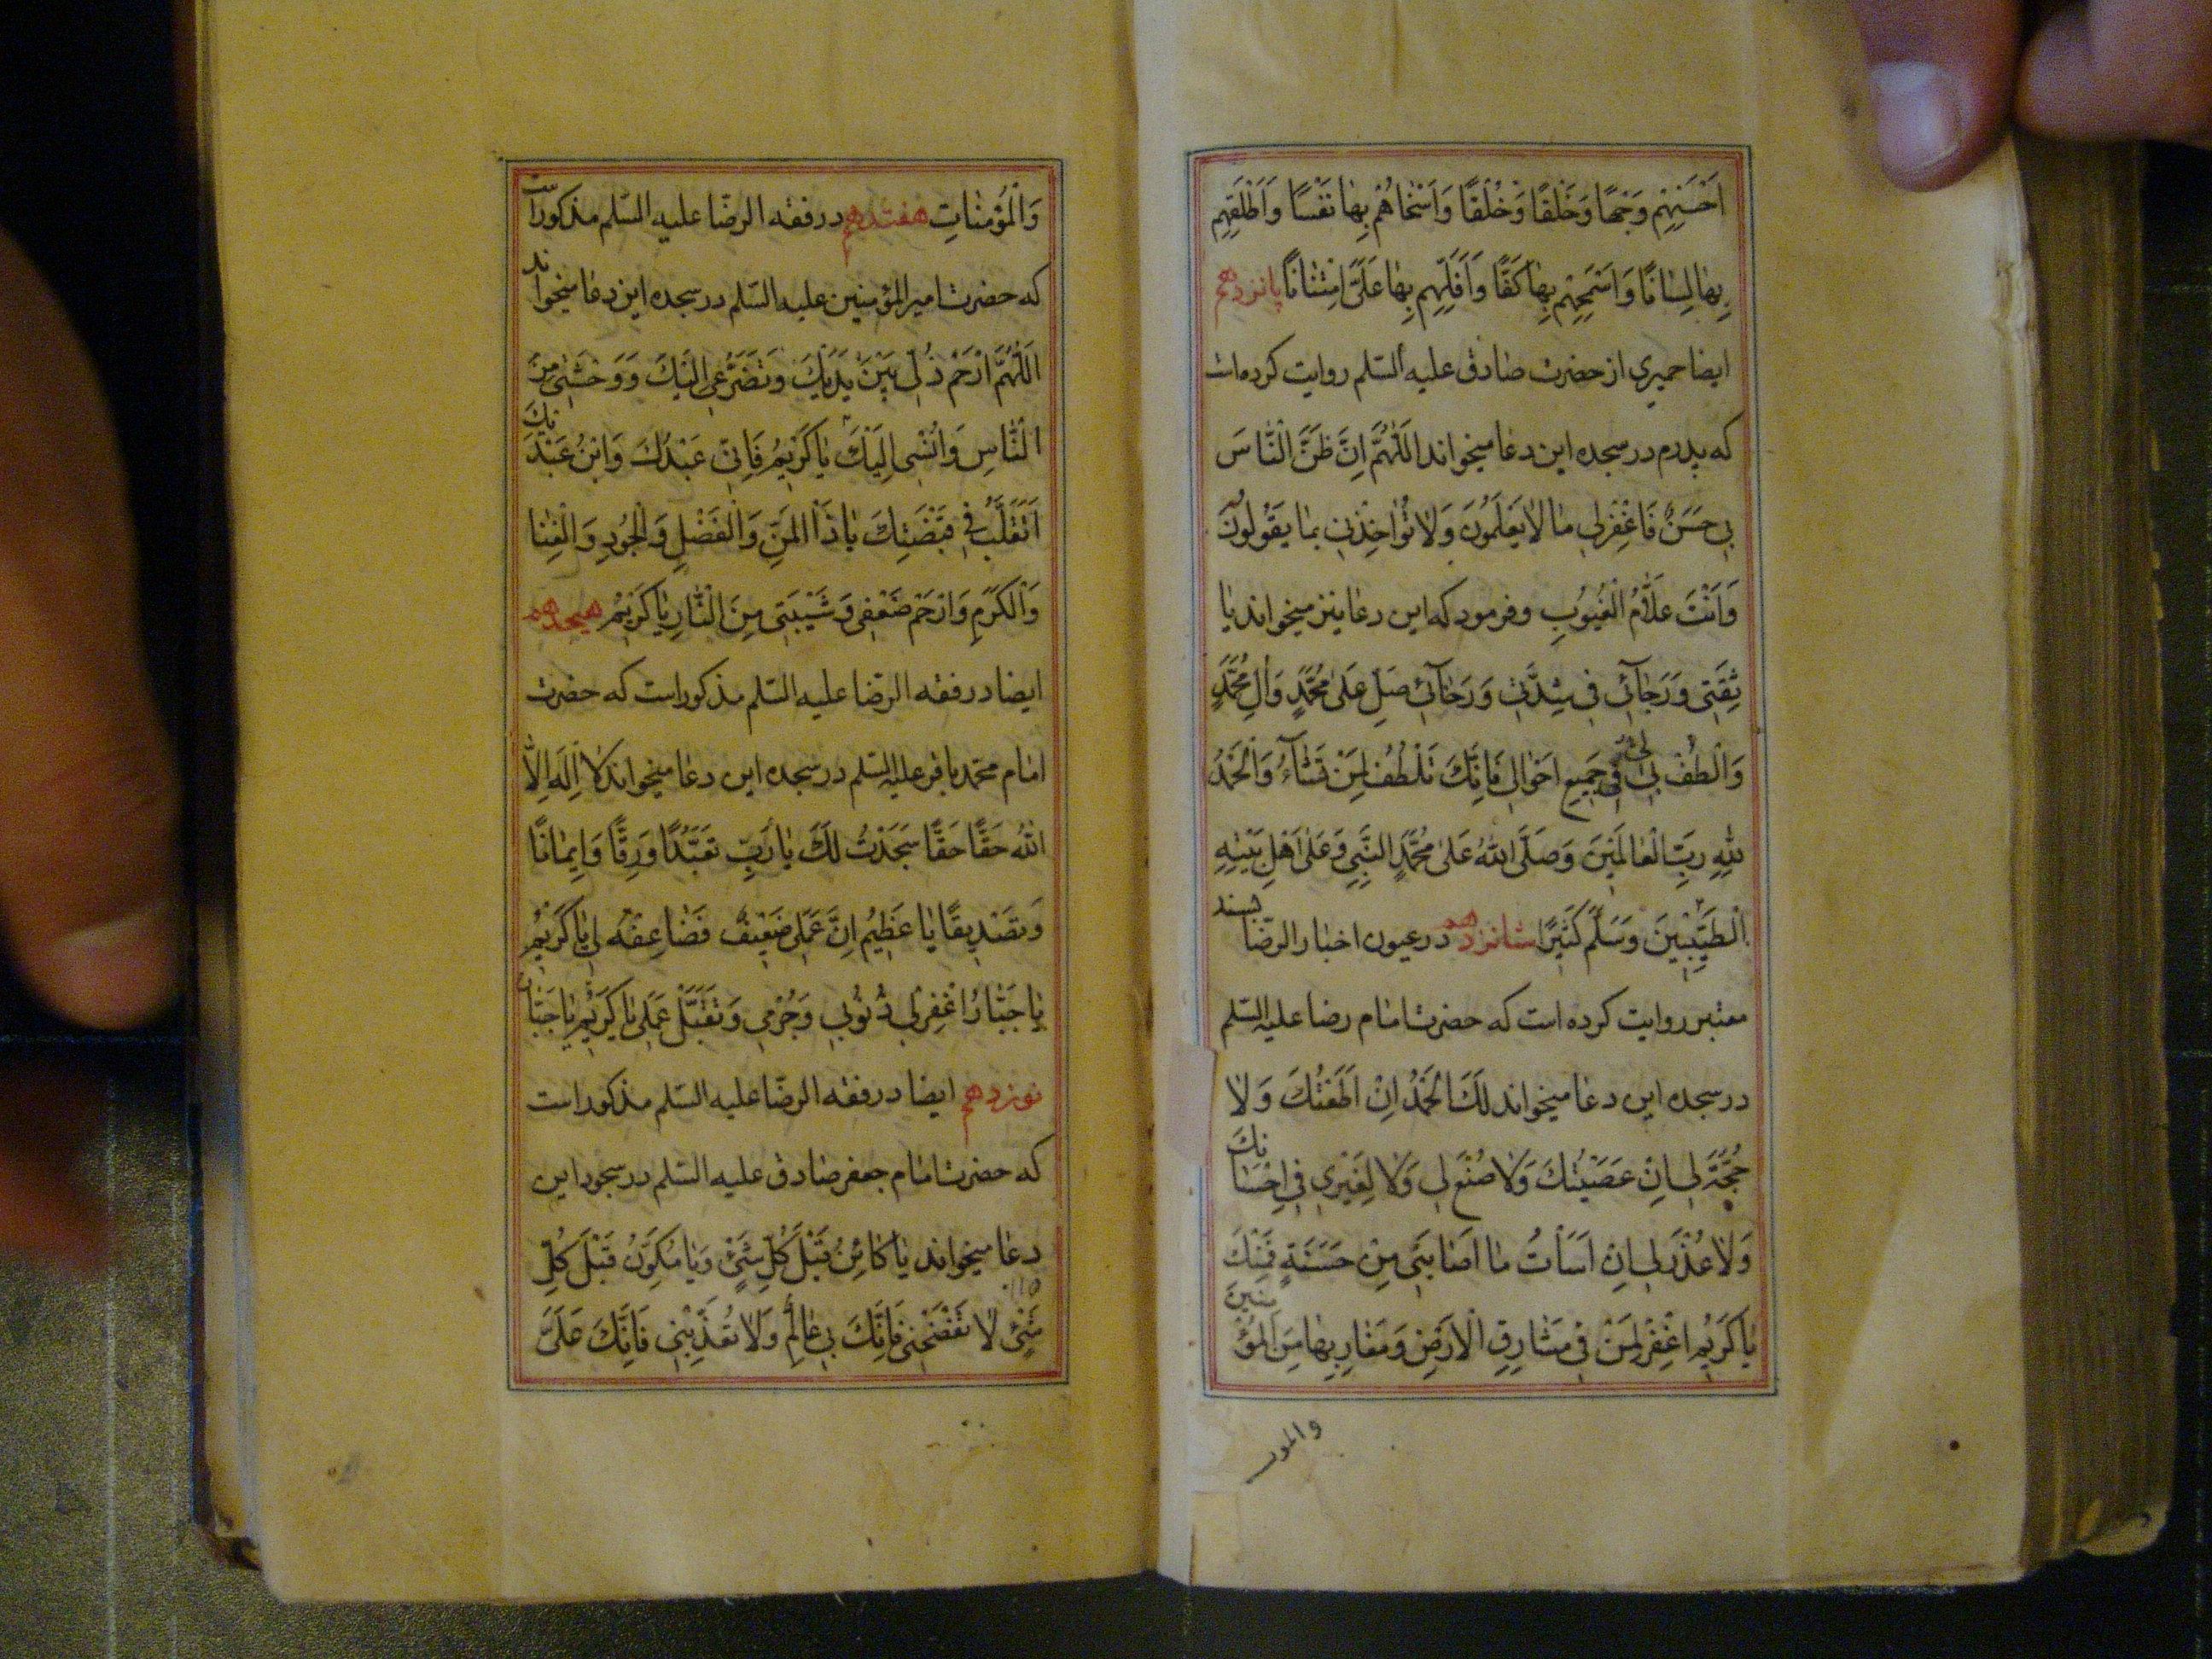 اَحْسَنِهِمْ وَجْهًا وَخَلْقًا وَخُلْقًا وَاَسْخَاهُمْ بِهَا نَفْسًا وَاَطْلَقِهِمْ
بِهَا لِسَانًا وَاَسْمَحِهِمْ بِهَا كَفًّا وَاَقَلِّهِم بِهَا عَلَىَّ امْتِنَانًا پانزدهم
ايضا حميرى از حضرت صادق عليه السّلم روايت كرده است
كه پدرم در سجده اين دعا ميخواند اَللّٰهُمَّ اِنَّ ظَنَّ الْنَّاسَ
بِى حَسَنٌ فَاغْفِرْلِى مَا لَا يَعْلَمُونَ وَلَا تُؤَاخِذْنِى بِمَا يَقُولُونَ
وَاَنْتَ عَلَّامُ الْغُيُوبِ و فرمود كه اين دعا نيز ميخواند يَا
ثِقَتِى وَرَجَآئِى فِى شِدَّتِى وَرَخَآئِى صَلِّ عَلَى مُحَمَّدٍ وَآلِ مُحَمَّدٍ
وَالْطُفْ لِى فِى جَمِيعِ اَحْوَالِى فَاِنَّكَ تَلْطُفُ لِمَنْ تَشَآءُ وَالْحَمْدُ
لِلّٰهِ رَبِّ الْعَالَمِينَ وَصَلَّى اللّٰهُ عَلَى مُحَمَّدٍ النَّبِيِّ وَعَلَى اَهْلِ بَيْتِهِ
الْطَيِّبِينَ وَسَلَّمَ كَثِيرًا شانزدهم در عيون اخبار الرضّا بسند
معتبر روايت كرده است كه حضرت امام رضا عليه السّلم
در سجده اين دعا ميخواند لَكَ الْحَمْدُ اِنْ اَطَعْتُكَ وَلَا
حُجَّةَ لِى اِنْ عَصَيْتُكَ وَلَا صُنْعَ لِى وَلَا لِغَيْرِى فِى اِحْسَانِكَ
وَلَا عُذْرَ لِى اِنْ اَسَأْتُ مَا اَصَابَنِى مِنْ حَسَنَةٍ فَمِنْكَ
يَا كَرِيمُ اغْفِرْ لِمَنْ فِى مَشَارِقِ الْاَرْضِ وَمَغَارِبِهَا مِنَ الْمُؤْمِنِينَ
والمو
وَالْمُؤْمِنَاتِ هفتدهم در فقه الرضّا عليه السّلم مذكور است
كه حضرت امير المؤمنين عليه السّلم در سجده اين دعا ميخواند
اَللّٰهُمَّ ارْحَمْ ذُلِّى بَيْنَ يَدَيْكَ وَتَضَرُّعِى اِلَيْكَ وَوَحْشَتِى مِنَ
الْنَّاسِ وَاُنْسِى اِلَيْكَ يَا كَرِيمُ فَاِنِّى عَبْدُكَ وَابْنُ عَبْدِكَ
اَتَقَلَّبُ فِى قَبْضَتِكَ يَا ذَا الْمَنِّ وَالْفَضْلِ وَالْجُودِ وَالْغِنَا
وَالْكَرَمِ وَارْحَمْ ضَعْفِى وَشَيْبَتِى مِنَ الْنَّارِ يَا كَرِيمُ هيجدهم
ايضا در فقه الرّضا عليه السّلم مذكور است كه حضرت
امام محمّد باقر عليه السّلم در سجده اين دعا ميخواند لَا اِلٰهَ اِلَّا
اللّٰهُ حَقًّا حَقًّا سَجَدْتُ لَكَ يَا رَبِّ تَعَبُّدًا وَرِقًّا وَاِيمَانًا
وَتَصْدِيقًا يَا عَظِيمُ اِنَّ عَمَلِى ضَعِيفٌ فَضَاعِفْهُ لِى يَا كَرِيمُ
يَا جَبَّارُ اغْفِرْلِى ذُنُوبِى وَجُرْمِى وَتَقَبَّلْ عَمَلِى يَا كَرِيمُ يَا جَبَّارُ
نوزدهم ايضا در فقه الرضّا عليه السّلم مذكور است
كه حضرت امام جعفر صادق عليه السّلم در سجود اين
دعا ميخواند يَا كَائِنُ قَبْلَ كُلِّ شَىْءٍ وَيَا مُكَوِّنُ قَبْلَ كُلِّ
شَىْءٍ لَا تَفْضَحْنِى فَاِنَّكَ بِى عَالِمٌ وَلَا تُعَذِّبْنِى فَاِنَّكَ عَلَىَّ